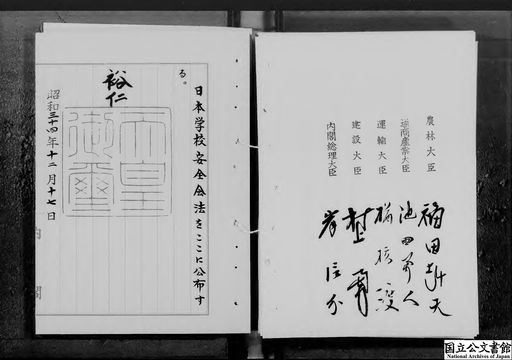 農林大臣 福田赳夫
通商産業大臣 池田勇人
運輸大臣 楢橋渡
建設大臣 村上勇
内閣総理大臣 岸信介
日本学校安全会法をここに公布す
る。
裕仁
天皇御璽
昭和三十四年十二月十七日
内閣
国立公文書館
National Archives of Japan